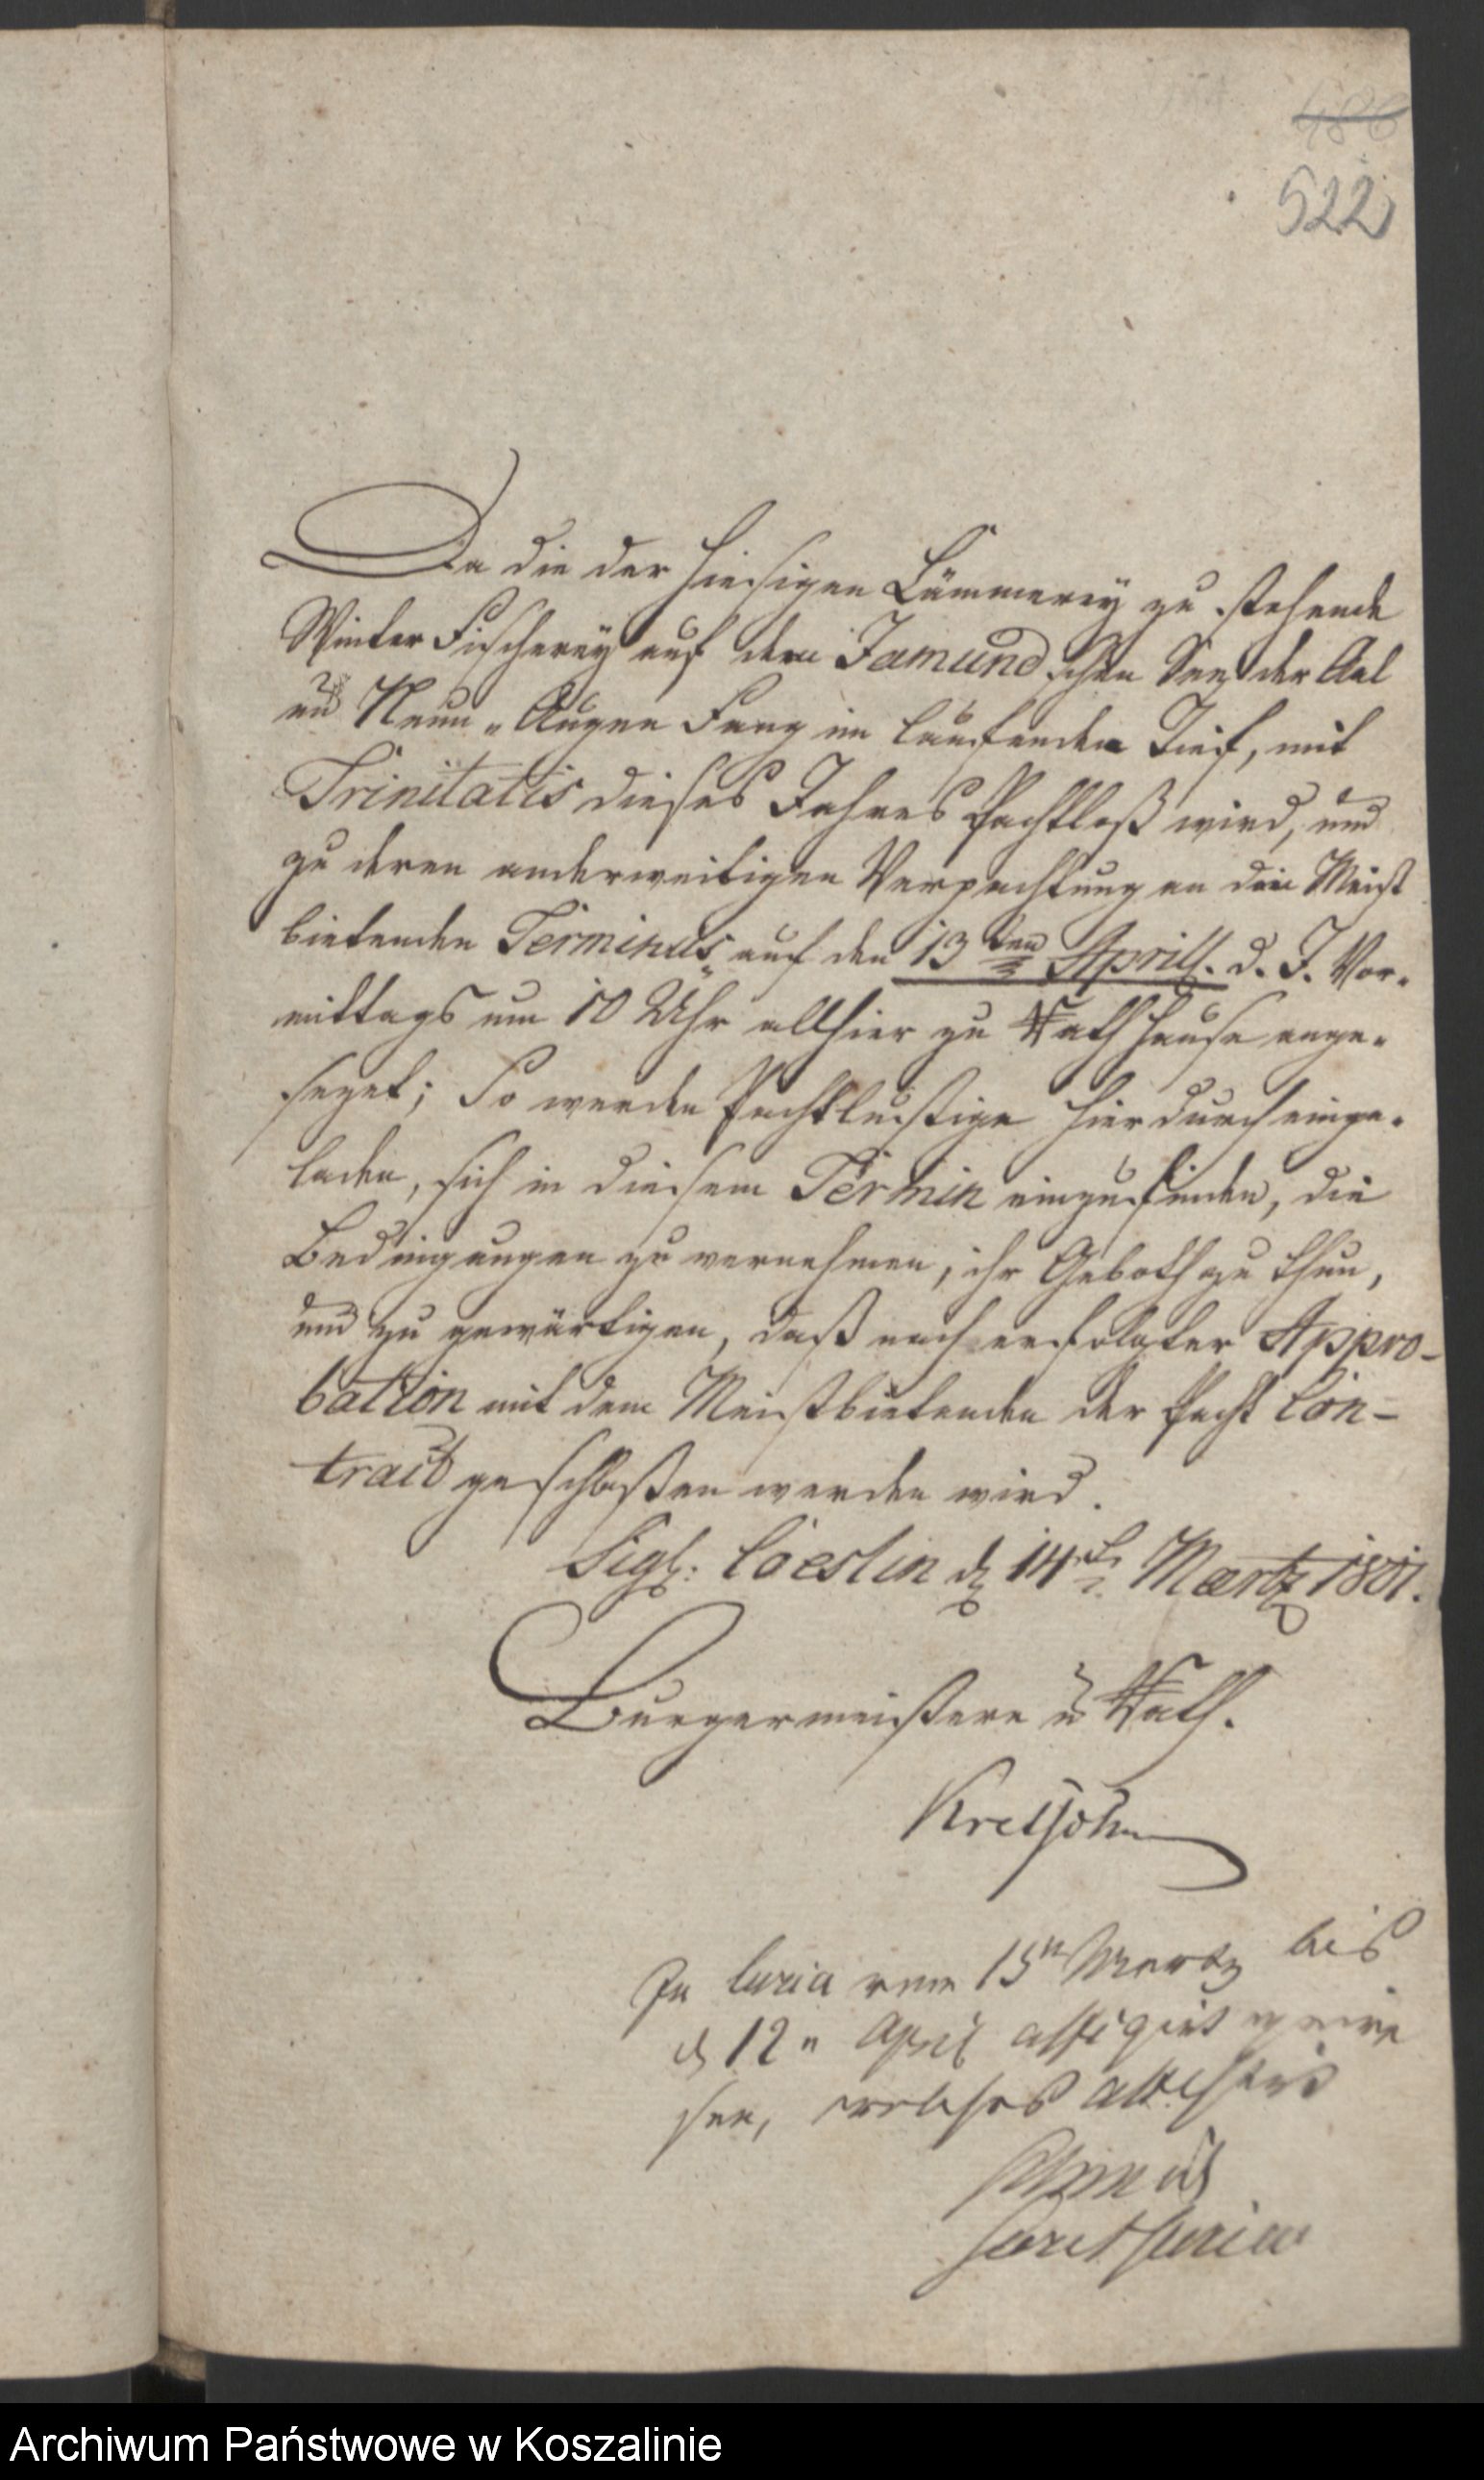 486
522
Da die der hiesigen Cämmerey zu stehende
Winter Fischerey auf dem Jamundschen See, der Aal
und Neun-Augen Fang im laufenden Tief, mit
Trinitatis dieses Jahres Pachtloß wird, und
zu deren anderweitigen Verpachtung an den Meist
bietenden Terminus auf den 13ten Aprill. d. J. Vor-
mittags um 10 Uhr allhier zu Rathhause ange-
sezet; So werden Pachtlustige hierdurch einge-
laden, sich in diesem Termin einzufinden, die
Bedingungen zu vernehmen, ihr Geboth zu thun,
und zu gewärtigen, daß nach erfolgter Appro-
bation mit dem Meistbietenden der Pacht Con-
tract geschloßen werden wird.
Sigl: Coeslin d 14t Maertz 1801.
Burgermeistere u Rath.
Kretschm
In Curia vom 15n Maertz bis
d 12n April affigirt gewe
sen, welches attestirt
Archiwum Państwowe w Koszalinie